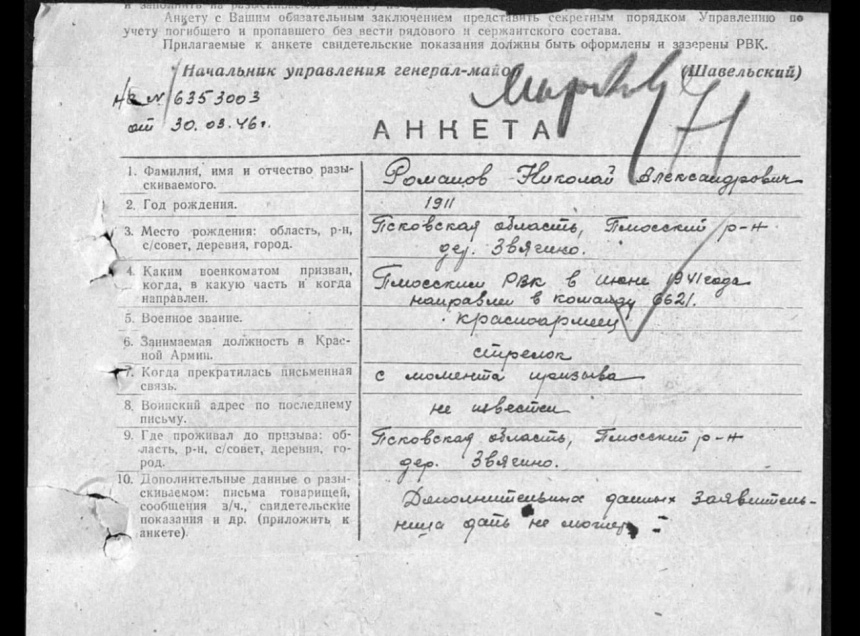 и заполнить на разыскиваемого анкету
Анкету с Вашим обязательным заключением представить секретным порядком Управлению по
учету погибшего и пропавшего без вести рядового и сержантского состава.
Прилагаемые к анкете свидетельские показания должны быть оформлены и заверены РВК.
Начальник управления генерал-майор (Шавельский)
№ 6353003
от 30.03.46г.
АНКЕТА
1. Фамилия, имя и отчество разы-
скиваемого.
Романов Николай Александрович
2. Год рождения.
1911
3. Место рождения: область, р-н,
с/совет, деревня, город.
Псковская область, Плюсский р-н
дер. Звягино.
4. Каким военкоматом призван,
когда, в какую часть и когда
направлен.
Плюсским РВК в июне 1941 года
направлен в команду 6621.
5. Военное звание.
красноармеец
6. Занимаемая должность в Крас-
ной Армии.
стрелок
7. Когда прекратилась письменная
связь.
с момента призыва
8. Воинский адрес по последнему
письму.
не известен
9. Где проживал до призыва: об-
ласть, р-н, с/совет, деревня, го-
род.
Псковская область, Плюсский р-н
дер. Звягино.
10. Дополнительные данные о разы-
скиваемом: письма товарищей,
сообщения з/ч., свидетельские
показания и др. (приложить к
анкете)
Дополнительных данных заявитель-
ница дать не может.